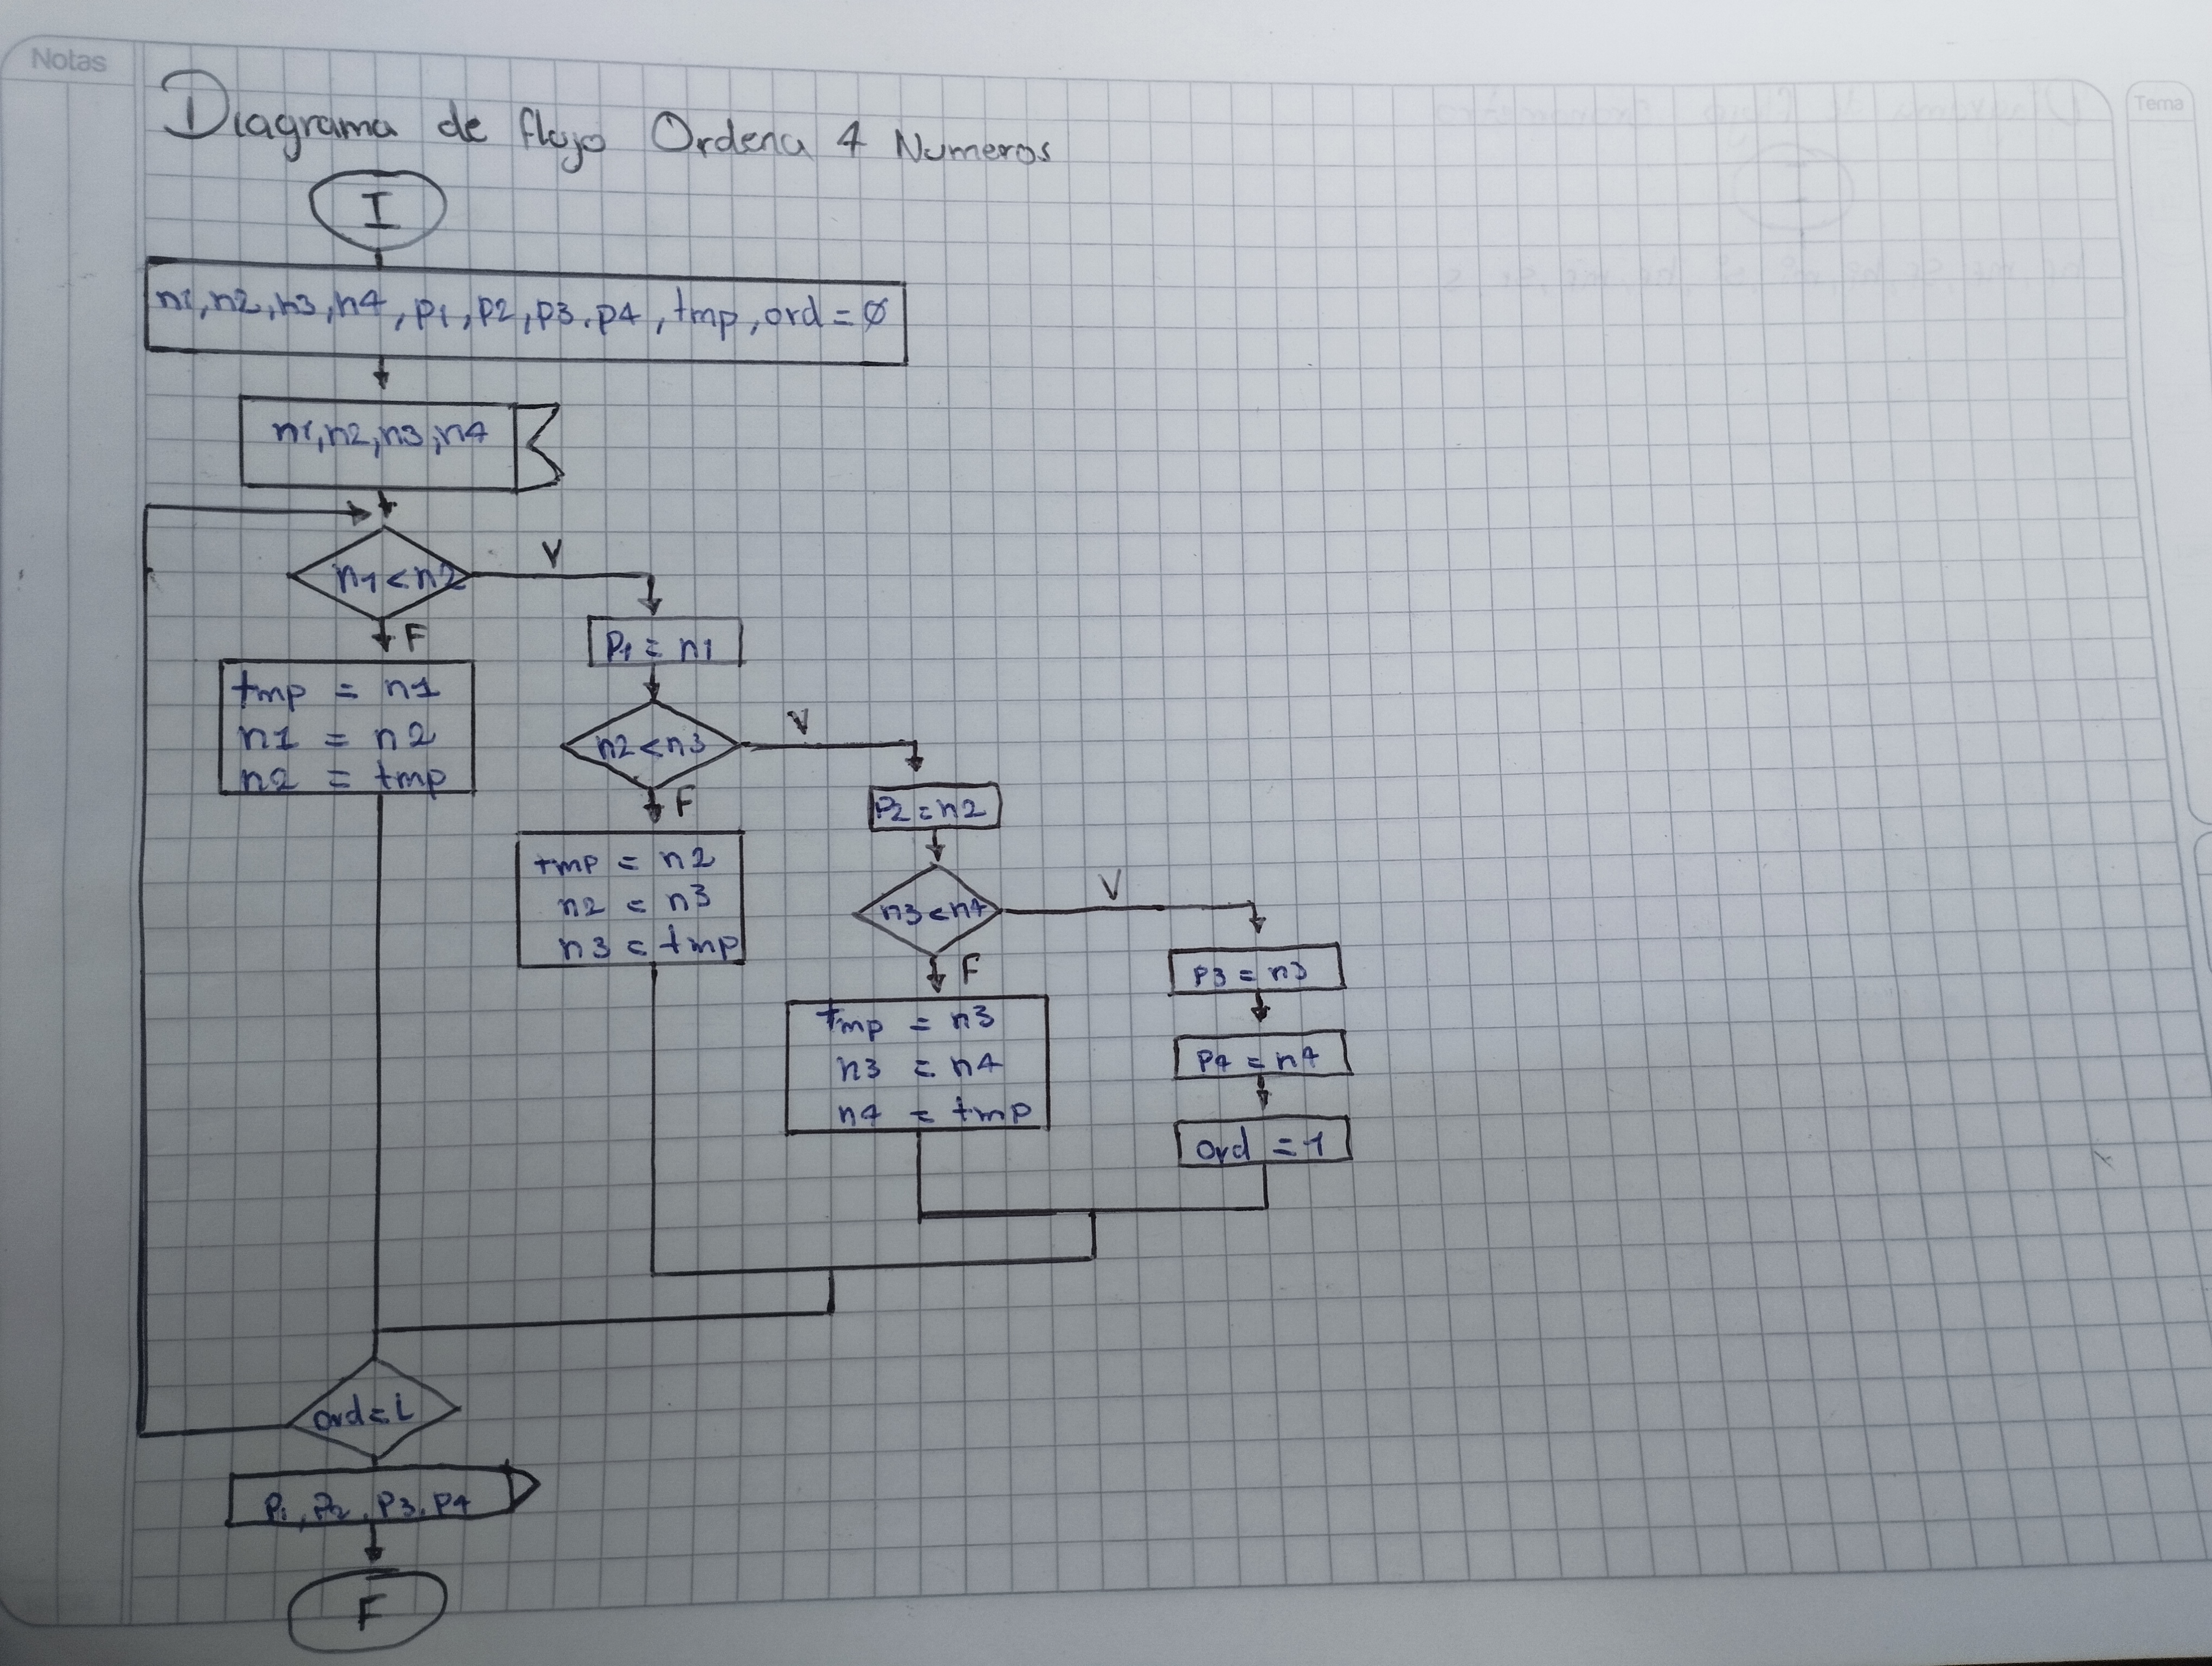 Notas
Tema
Diagrama de flujo Ordena 4 Numeros
I
n1,n2,n3,n4,p1,p2,p3.p4,tmp,ord=Ø
n1,n2,n3,n4
n1<n2
V
F
P1 = n1
tmp = n1
n1 = n2
n2 = tmp
n2<n3
V
F
P2=n2
tmp = n2
n2 = n3
n3 = tmp
n3<n4
V
F
P3 = n3
tmp = n3
n3 = n4
n4 = tmp
P4 = n4
ord = 1
ord=1
P1,P2,P3.P4
F